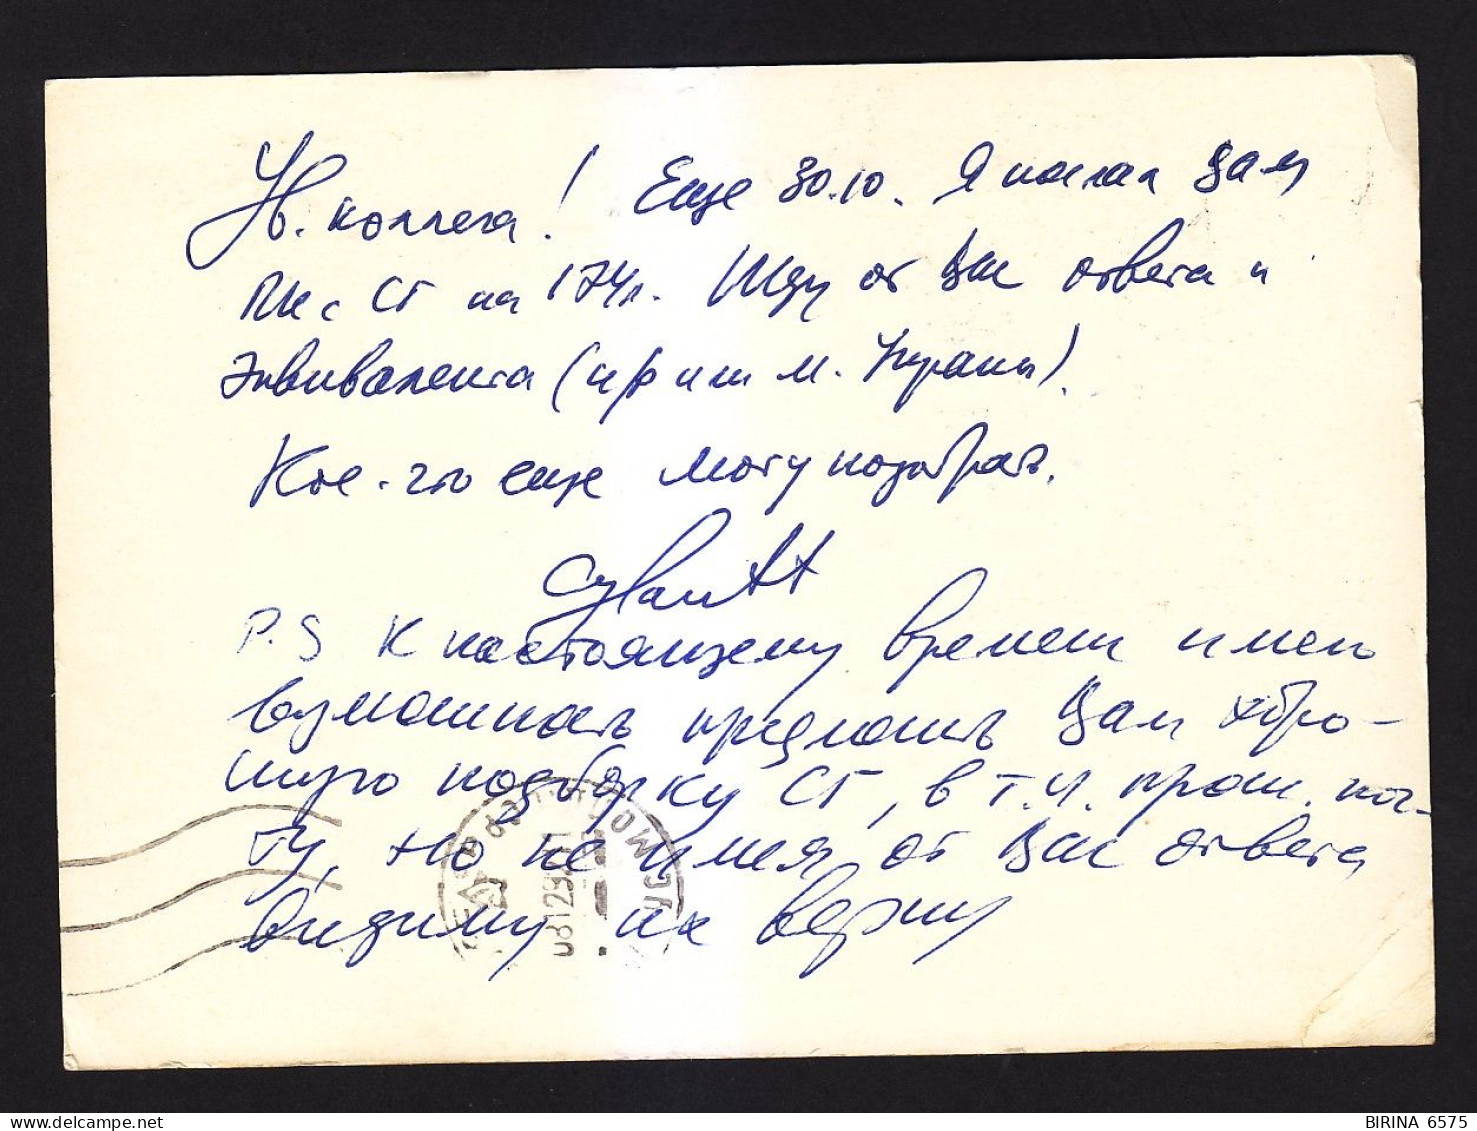 Ув. коллега! Еще 30.10. Я послал Вам
ПК с СГ на 174р. Жду от Вас ответа и
эквивалента (и/ф и ш м. Украины).
Кое-что еще могу подобрать.
P.S К настоящему времени имею
возможность предложить Вам хоро-
шую подборку СГ, в т.ч. прош. поч-
ту, но не имея от Вас ответа
видимо их верну
081292
BIRINA 6575